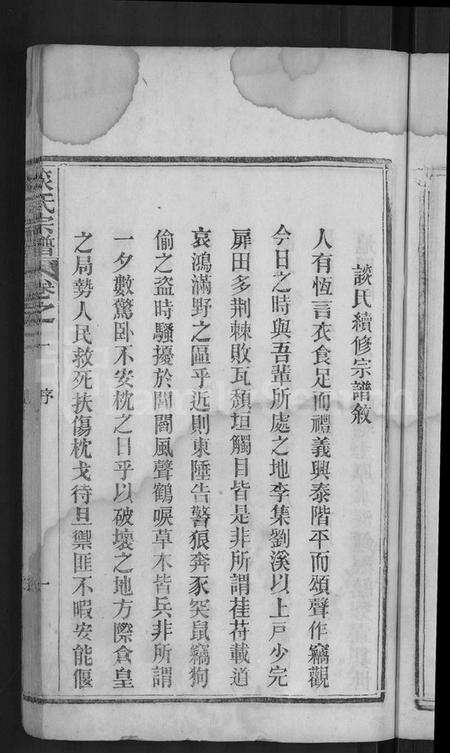 談氏續修宗譜敘
人有恆言衣食足而禮義興泰階平而頌聲作竊觀
今日之時與吾輩所處之地李集劉溪以上戸少完
扉田多荆棘敗瓦頹垣觸目皆是非所謂萑苻載道
哀鴻滿野之區乎近則東陲告警狼奔豕突鼠竊狗
偷之盜時騷擾於閭閻風聲鶴唳草木皆兵非所謂
一夕數驚卧不安枕之日乎以破壞之地方際倉皇
之局勢人民救死扶傷枕戈待旦禦匪不暇安能偃
談氏宗譜 卷之一 序 一